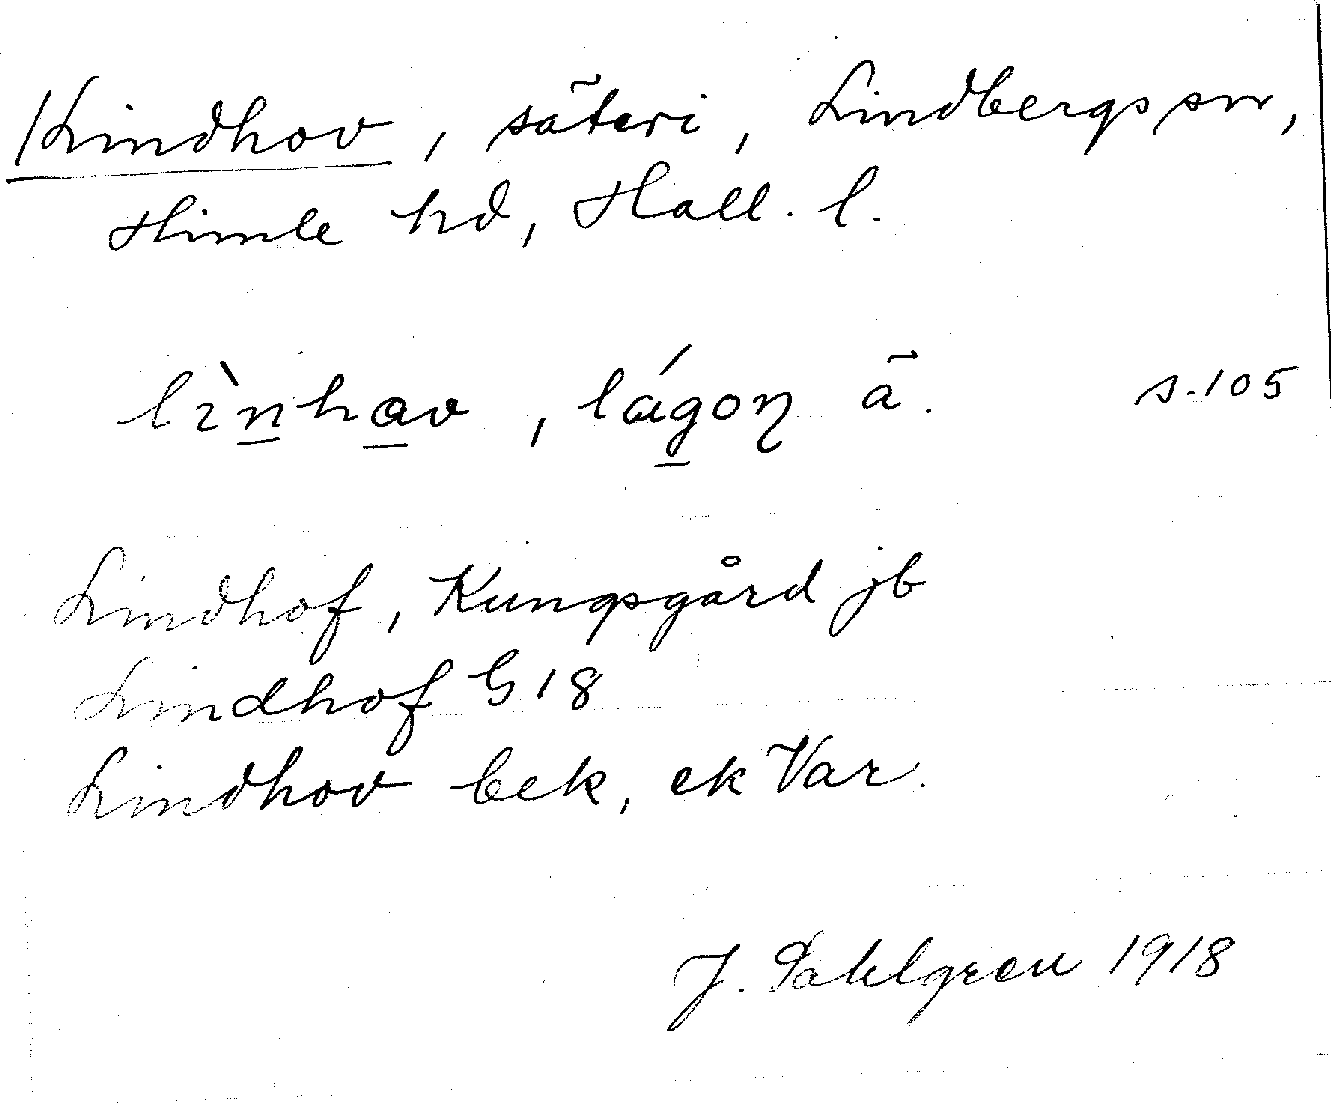 /Lindhov, säteri, Lindbergs sn,
Himle hd, Hall. l.
lìnhav, lágoŋ ä. s. 105
Lindhof, Kungsgård jb
Lindhof G 18
Lindhov bek, ek Var.
J. Dahlgren 1918